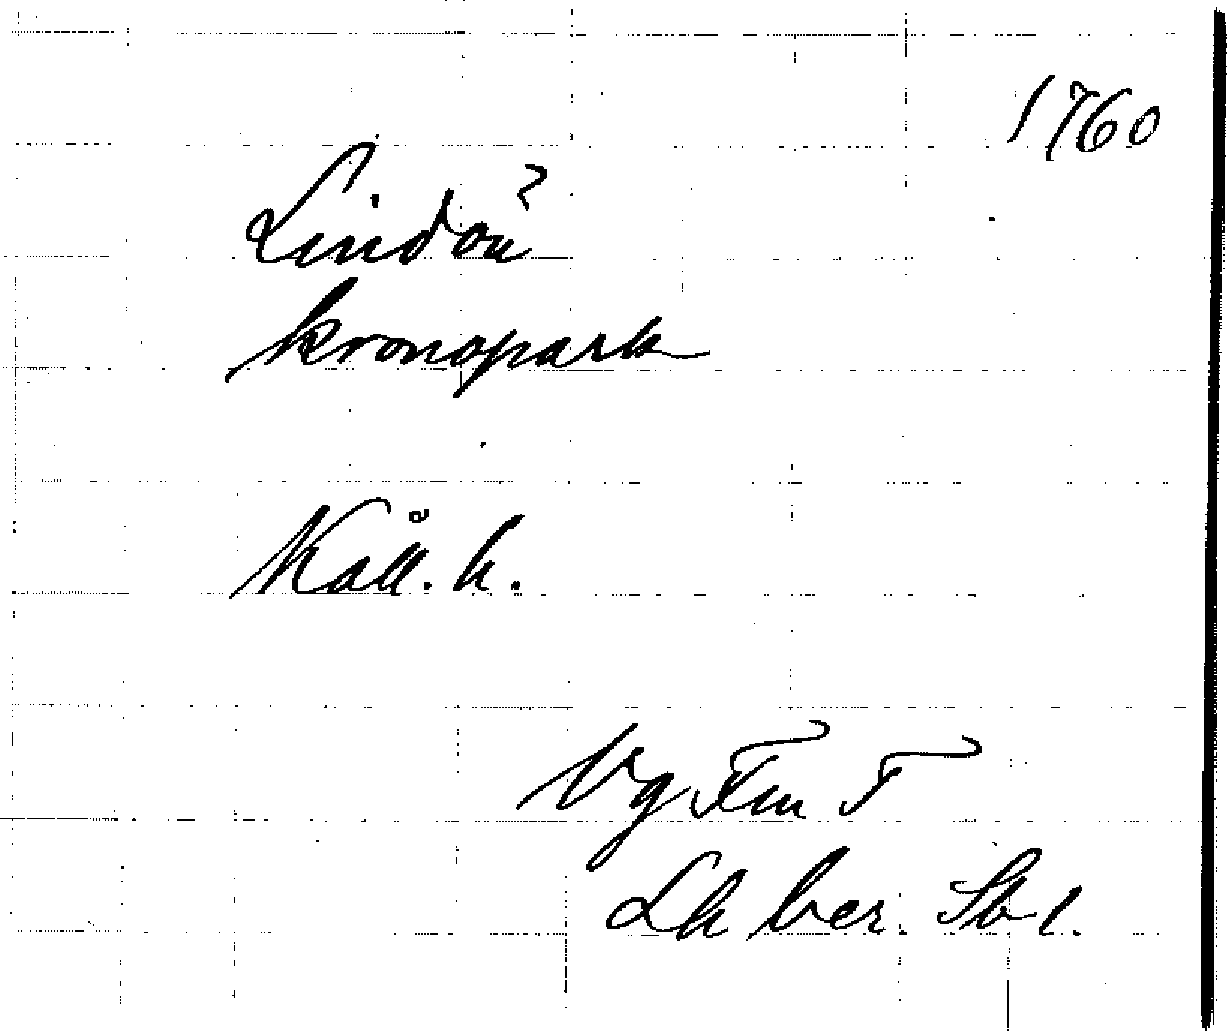 1760
Lindön
kronopark
Kåll. h.
Vg Fm T
Lh ber. Sb 1.